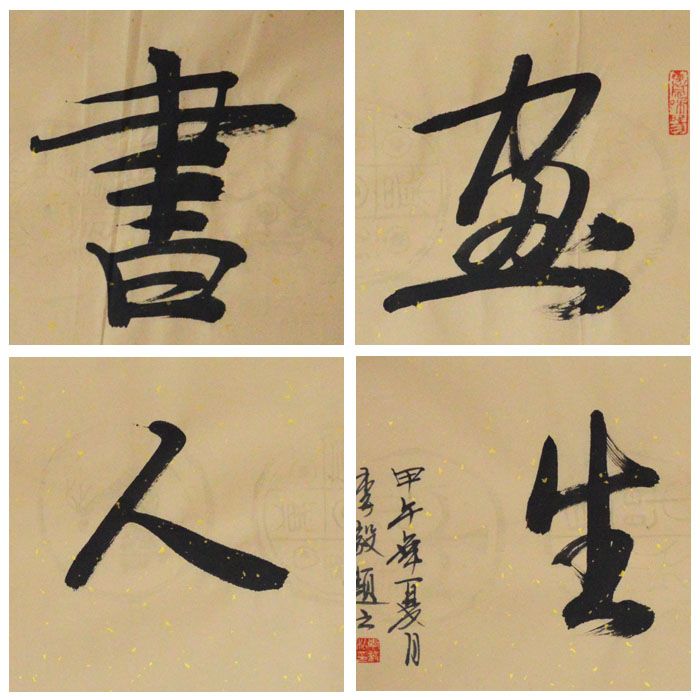 書畫
人生
甲午年夏月
李毅題之